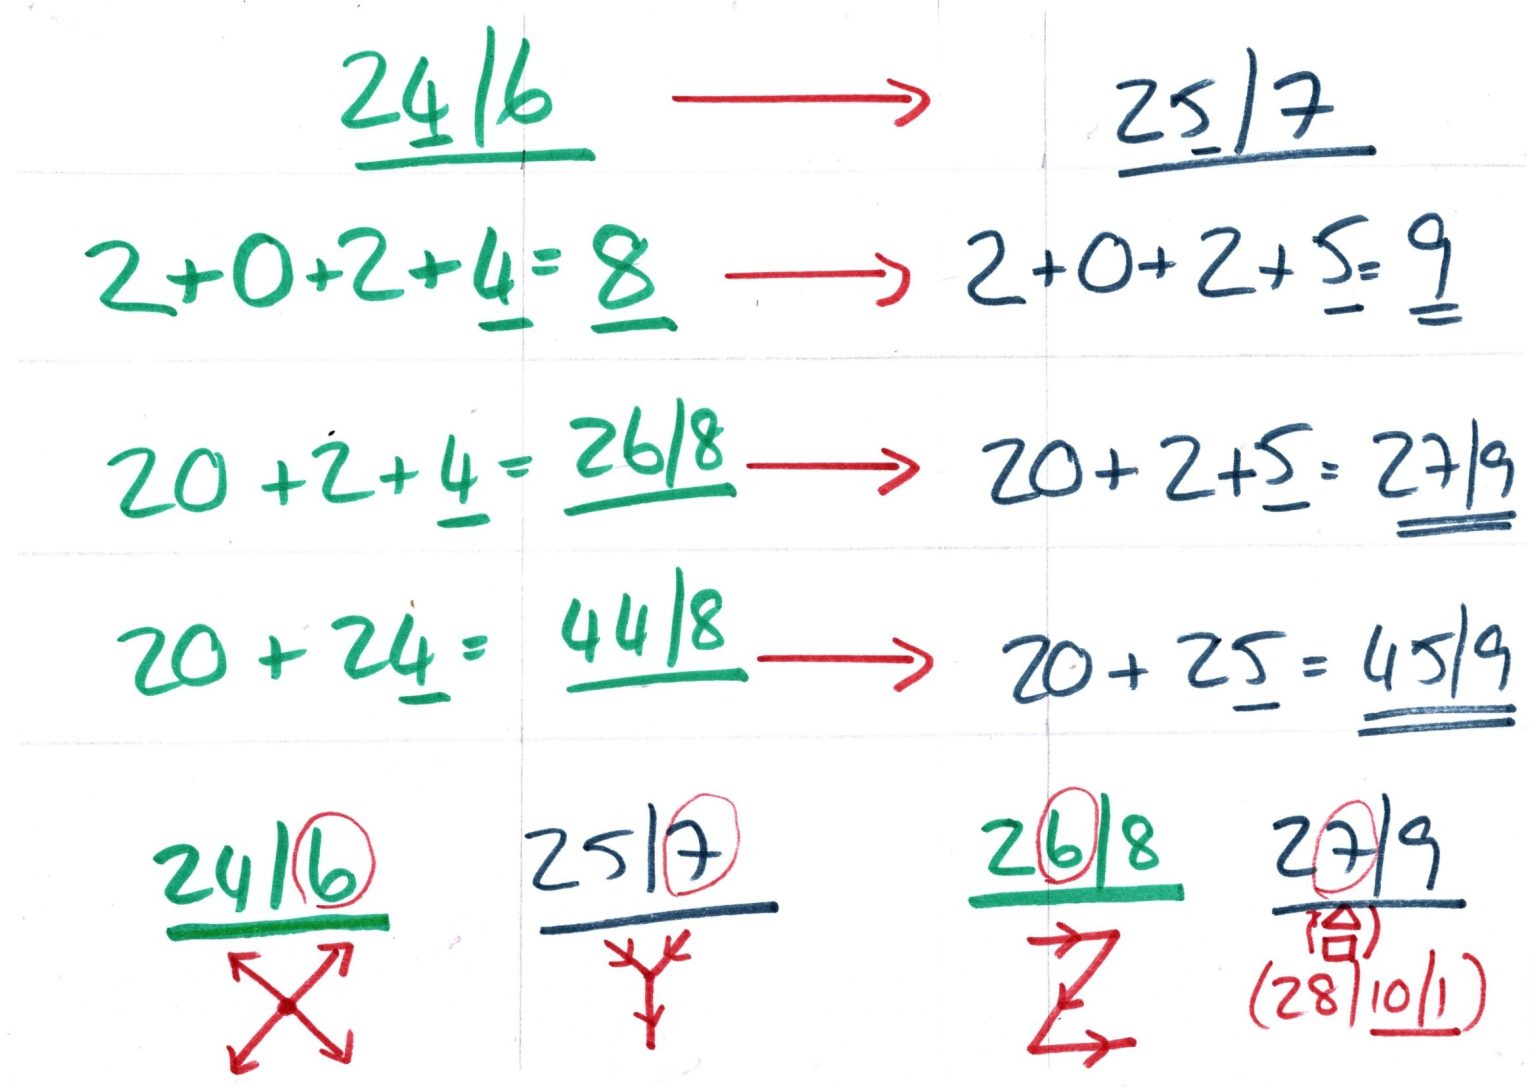 24/6 → 25/7
2+0+2+4=8 → 2+0+2+5=9
20+2+4=26/8 → 20+2+5=27/9
20+24=44/8 → 20+25=45/9
24/6 25/7 26/8 27/9
X Y Z (28/10/1)